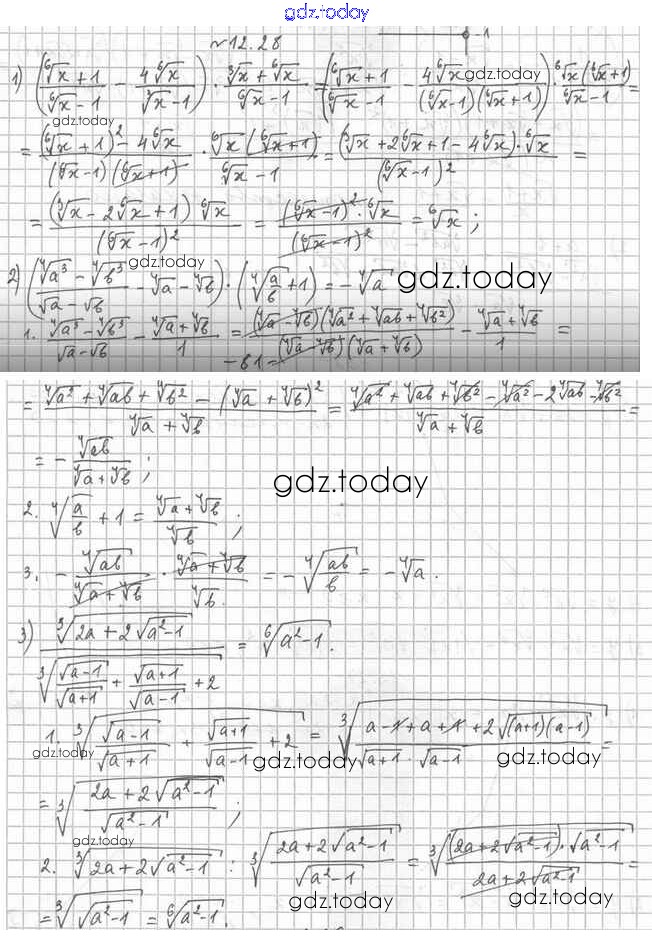 gdz.today
№12.28
1) ((⁶√x + 1)/(⁶√x - 1) - 4⁶√x/(³√x - 1)) · (³√x + ⁶√x)/(⁶√x - 1) = ((⁶√x + 1)/(⁶√x - 1) - 4⁶√x/((⁶√x - 1)(⁶√x + 1))) · ⁶√x(⁶√x + 1)/(⁶√x - 1) =
gdz.today
gdz.today
= ((⁶√x + 1)² - 4⁶√x)/((⁶√x - 1)(⁶√x + 1)) · ⁶√x(⁶√x + 1)/(⁶√x - 1) = (³√x + 2⁶√x + 1 - 4⁶√x) · ⁶√x/(⁶√x - 1)² =
= (³√x - 2⁶√x + 1) ⁶√x/(⁶√x - 1)² = (⁶√x - 1)² · ⁶√x/(⁶√x - 1)² = ⁶√x ;
gdz.today
2) ((⁴√a³ - ⁴√b³)/(√a - √b) - ⁴√a - ⁴√b) · (⁴√(a/b) + 1) = - ⁴√a
gdz.today
1. (⁴√a³ - ⁴√b³)/(√a - √b) - (⁴√a + ⁴√b)/1 = (⁴√a - ⁴√b)(⁴√a² + ⁴√ab + ⁴√b²)/((⁴√a - ⁴√b)(⁴√a + ⁴√b)) - (⁴√a + ⁴√b)/1 =
= (⁴√a² + ⁴√ab + ⁴√b² - (⁴√a + ⁴√b)²)/(⁴√a + ⁴√b) = (⁴√a² + ⁴√ab + ⁴√b² - ⁴√a² - 2⁴√ab - ⁴√b²)/(⁴√a + ⁴√b) =
= - ⁴√ab/(⁴√a + ⁴√b) ;
gdz.today
2. ⁴√(a/b) + 1 = (⁴√a + ⁴√b)/⁴√b ;
3. - ⁴√ab/(⁴√a + ⁴√b) · (⁴√a + ⁴√b)/⁴√b = - ⁴√(ab/b) = - ⁴√a.
3) ³√(2a + 2√(a²-1)) / ³√(√(a-1)/√(a+1) + √(a+1)/√(a-1) + 2) = ⁶√(a²-1).
1. ³√(√(a-1)/√(a+1) + √(a+1)/√(a-1) + 2) = ³√((a - 1 + a + 1 + 2√((a+1)(a-1)))/(√(a+1) · √(a-1))) =
gdz.today
gdz.today
gdz.today
= ³√((2a + 2√(a²-1))/√(a²-1)) ;
gdz.today
2. ³√(2a + 2√(a²-1)) : ³√((2a + 2√(a²-1))/√(a²-1)) = ³√((2a + 2√(a²-1)) · √(a²-1)/(2a + 2√(a²-1))) =
gdz.today
gdz.today
= ³√(√(a²-1)) = ⁶√(a²-1).